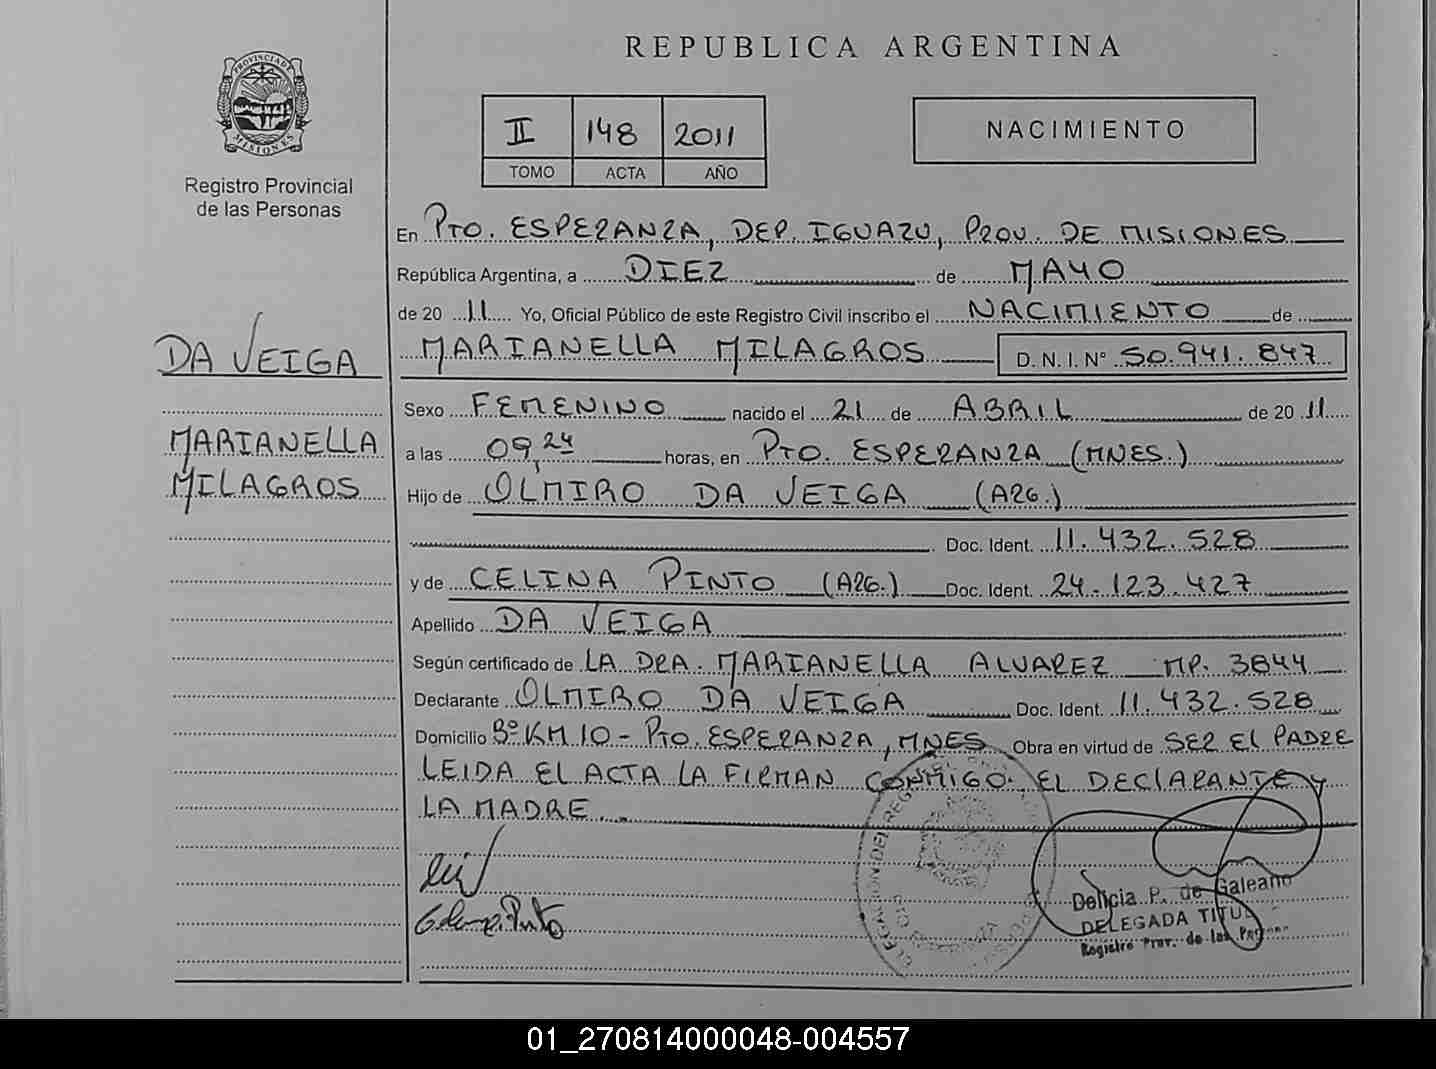 REPUBLICA ARGENTINA
PROVINCIA DE
MISIONES
Registro Provincial
de las Personas
II 148 2011
TOMO ACTA AÑO
NACIMIENTO
En PTO. ESPERANZA, DEP. IGUAZU, PROV. DE MISIONES
República Argentina, a DIEZ de MAYO
de 20 11 Yo, Oficial Público de este Registro Civil inscribo el NACIMIENTO de
MARIANELLA MILAGROS D.N.I.Nº 50.941.847
DA VEIGA
MARIANELLA
MILAGROS
Sexo FEMENINO nacido el 21 de ABRIL de 20 11
a las 09,24 horas, en PTO. ESPERANZA (MNES.)
Hijo de OLMIRO DA VEIGA (ARG.)
Doc. Ident. 11.432.528
y de CELINA PINTO (ARG.) Doc. Ident. 24.123.427
Apellido DA VEIGA
Según certificado de LA DRA. MARIANELLA ALVAREZ MP. 3844
Declarante OLMIRO DA VEIGA Doc. Ident. 11.432.528
Domicilio Bº KM 10 - PTO. ESPERANZA, MNES Obra en virtud de SER EL PADRE
LEIDA EL ACTA LA FIRMAN CONMIGO EL DECLARANTE Y
LA MADRE.
Pinto
Delicia P. de Galeano
DELEGADA TITUL
Registro Prov. de las Per
01_270814000048-004557